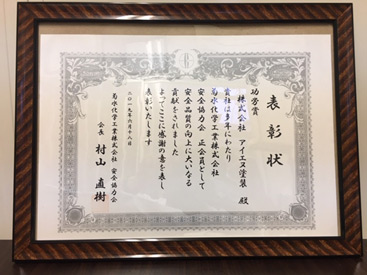 表彰状
功労賞
株式会社 アイエヌ塗装 殿
貴社は多年にわたり
菊水化学工業株式会社
安全協力会 正会員として
安全品質の向上に大いなる
貢献をされました
よってここに感謝の意を表し
表彰いたします
二〇一九年六月十八日
菊水化学工業株式会社 安全協力会
会長 村山 直樹